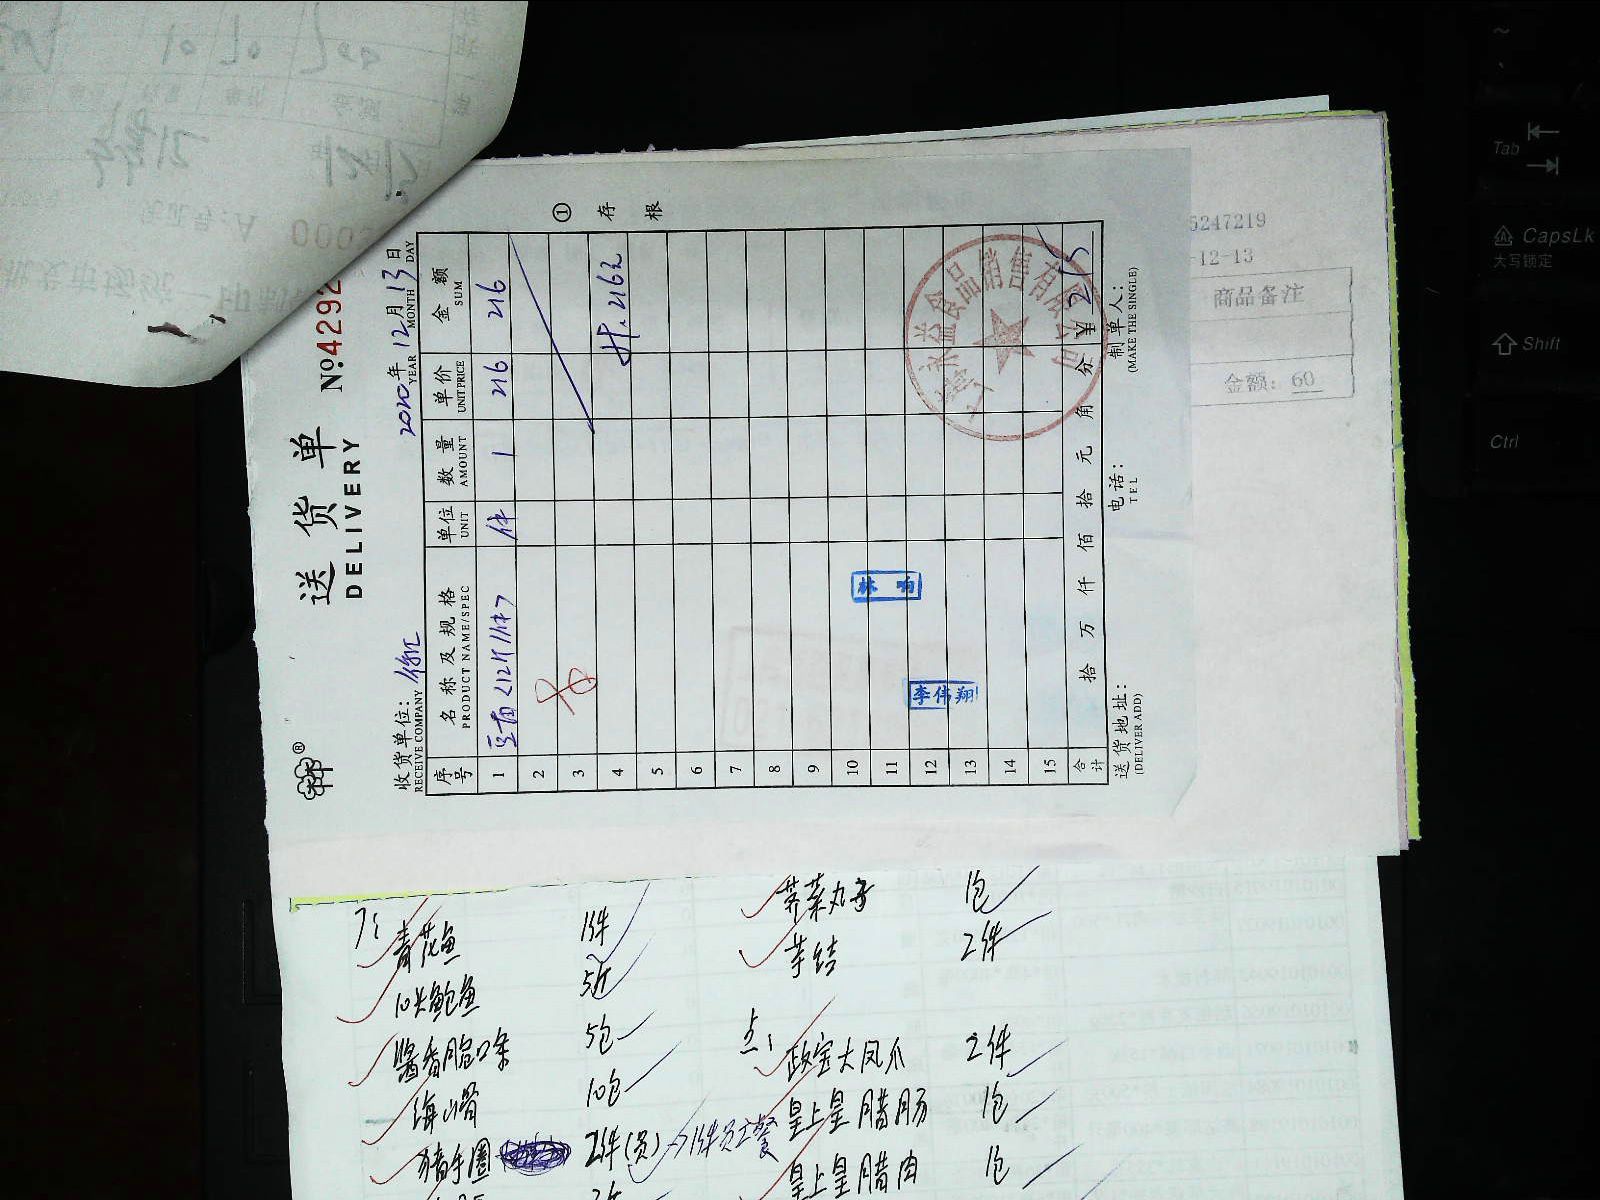 送货单
DELIVERY
№4292
收货单位: 徐汇
RECEIVE COMPANY
2020年12月13日
YEAR MONTH DAY
① 存根
序号 名称及规格 单位 数量 单价 金额
PRODUCT NAME/SPEC UNIT AMOUNT UNIT PRICE SUM
1 件 1 216 216
2
3
4 共:216元
5
6
7
8
9
10
11
12
13
14
15
合计 拾 万 仟 佰 拾 元 角 分 ¥
送货地址: 电话: 制单人:
(DELIVER ADD) TEL (MAKE THE SINGLE)
永益食品销售有限公司
林
李伟翔
5247219
-12-13
商品备注
金额: 60
青花鱼 1件
10头鲍鱼 5斤
酱香脆口条 5包
10包
猪手圈 2件(员) →1件员工餐
荠菜丸子 1包
芋结 2件
点:
政宝大凤爪 2件
皇上皇腊肠 1包
皇上皇腊肉 1包
Tab
CapsLk
大写锁定
Shift
Ctrl